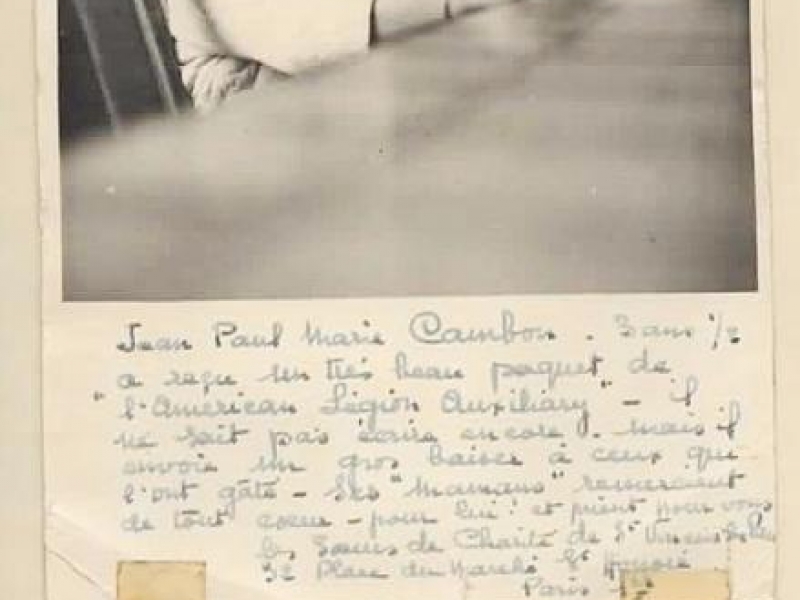 Jean Paul Marie Cambon. 3 ans 1/2
a reçu un très beau paquet de
"l'American Légion Auxiliary" - il
ne sait pas écrire encore. mais il
envoie un gros baiser à ceux qui
l'ont gâté - Ses "Mamans" remercient
de tout coeur - pour lui! et prient pour vous
les Soeurs de Charité de St Vincent de Paul
32 Place du Marché St Honoré
Paris